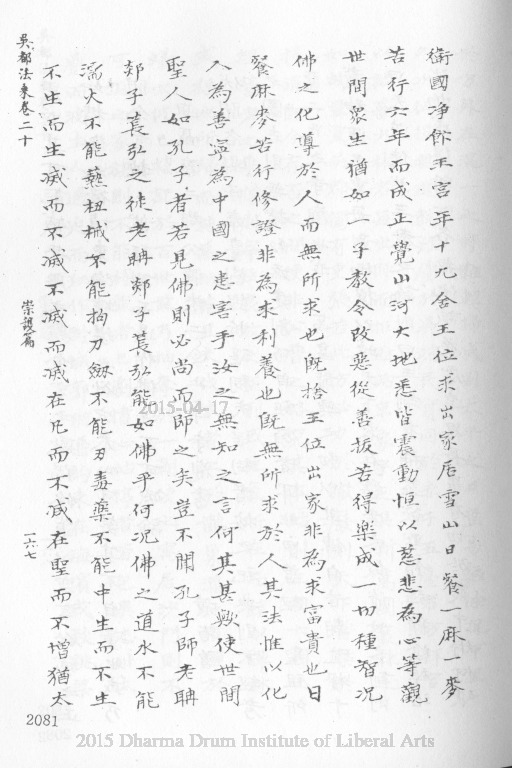 衛國淨飯王宮年十九舍王位求出家居雪山日餐一麻一麥
苦行六年而成正覺山河大地悉皆震動恒以慈悲為心等觀
世間眾生猶如一子教令改惡從善拔苦得樂成一切種智況
佛之化導於人而無所求也既捨王位出家非為求富貴也日
餐麻麥苦行修證非為求利養也既無所求於人其法惟以化
人為善寧為中國之患害乎汝之無知之言何其甚歟使世間
聖人如孔子者若見佛則必尚而師之矣豈不聞孔子師老聃
郯子萇弘之徒老聃郯子萇弘能如佛乎何況佛之道水不能
濡火不能爇杻械不能拘刀劒不能刃毒藥不能中生而不生
不生而生滅而不滅不滅而滅在凡而不減在聖而不增猶太
吳都法乘卷二十
崇護篇
一六七
2081
2015-04-17
2015 Dharma Drum Institute of Liberal Arts